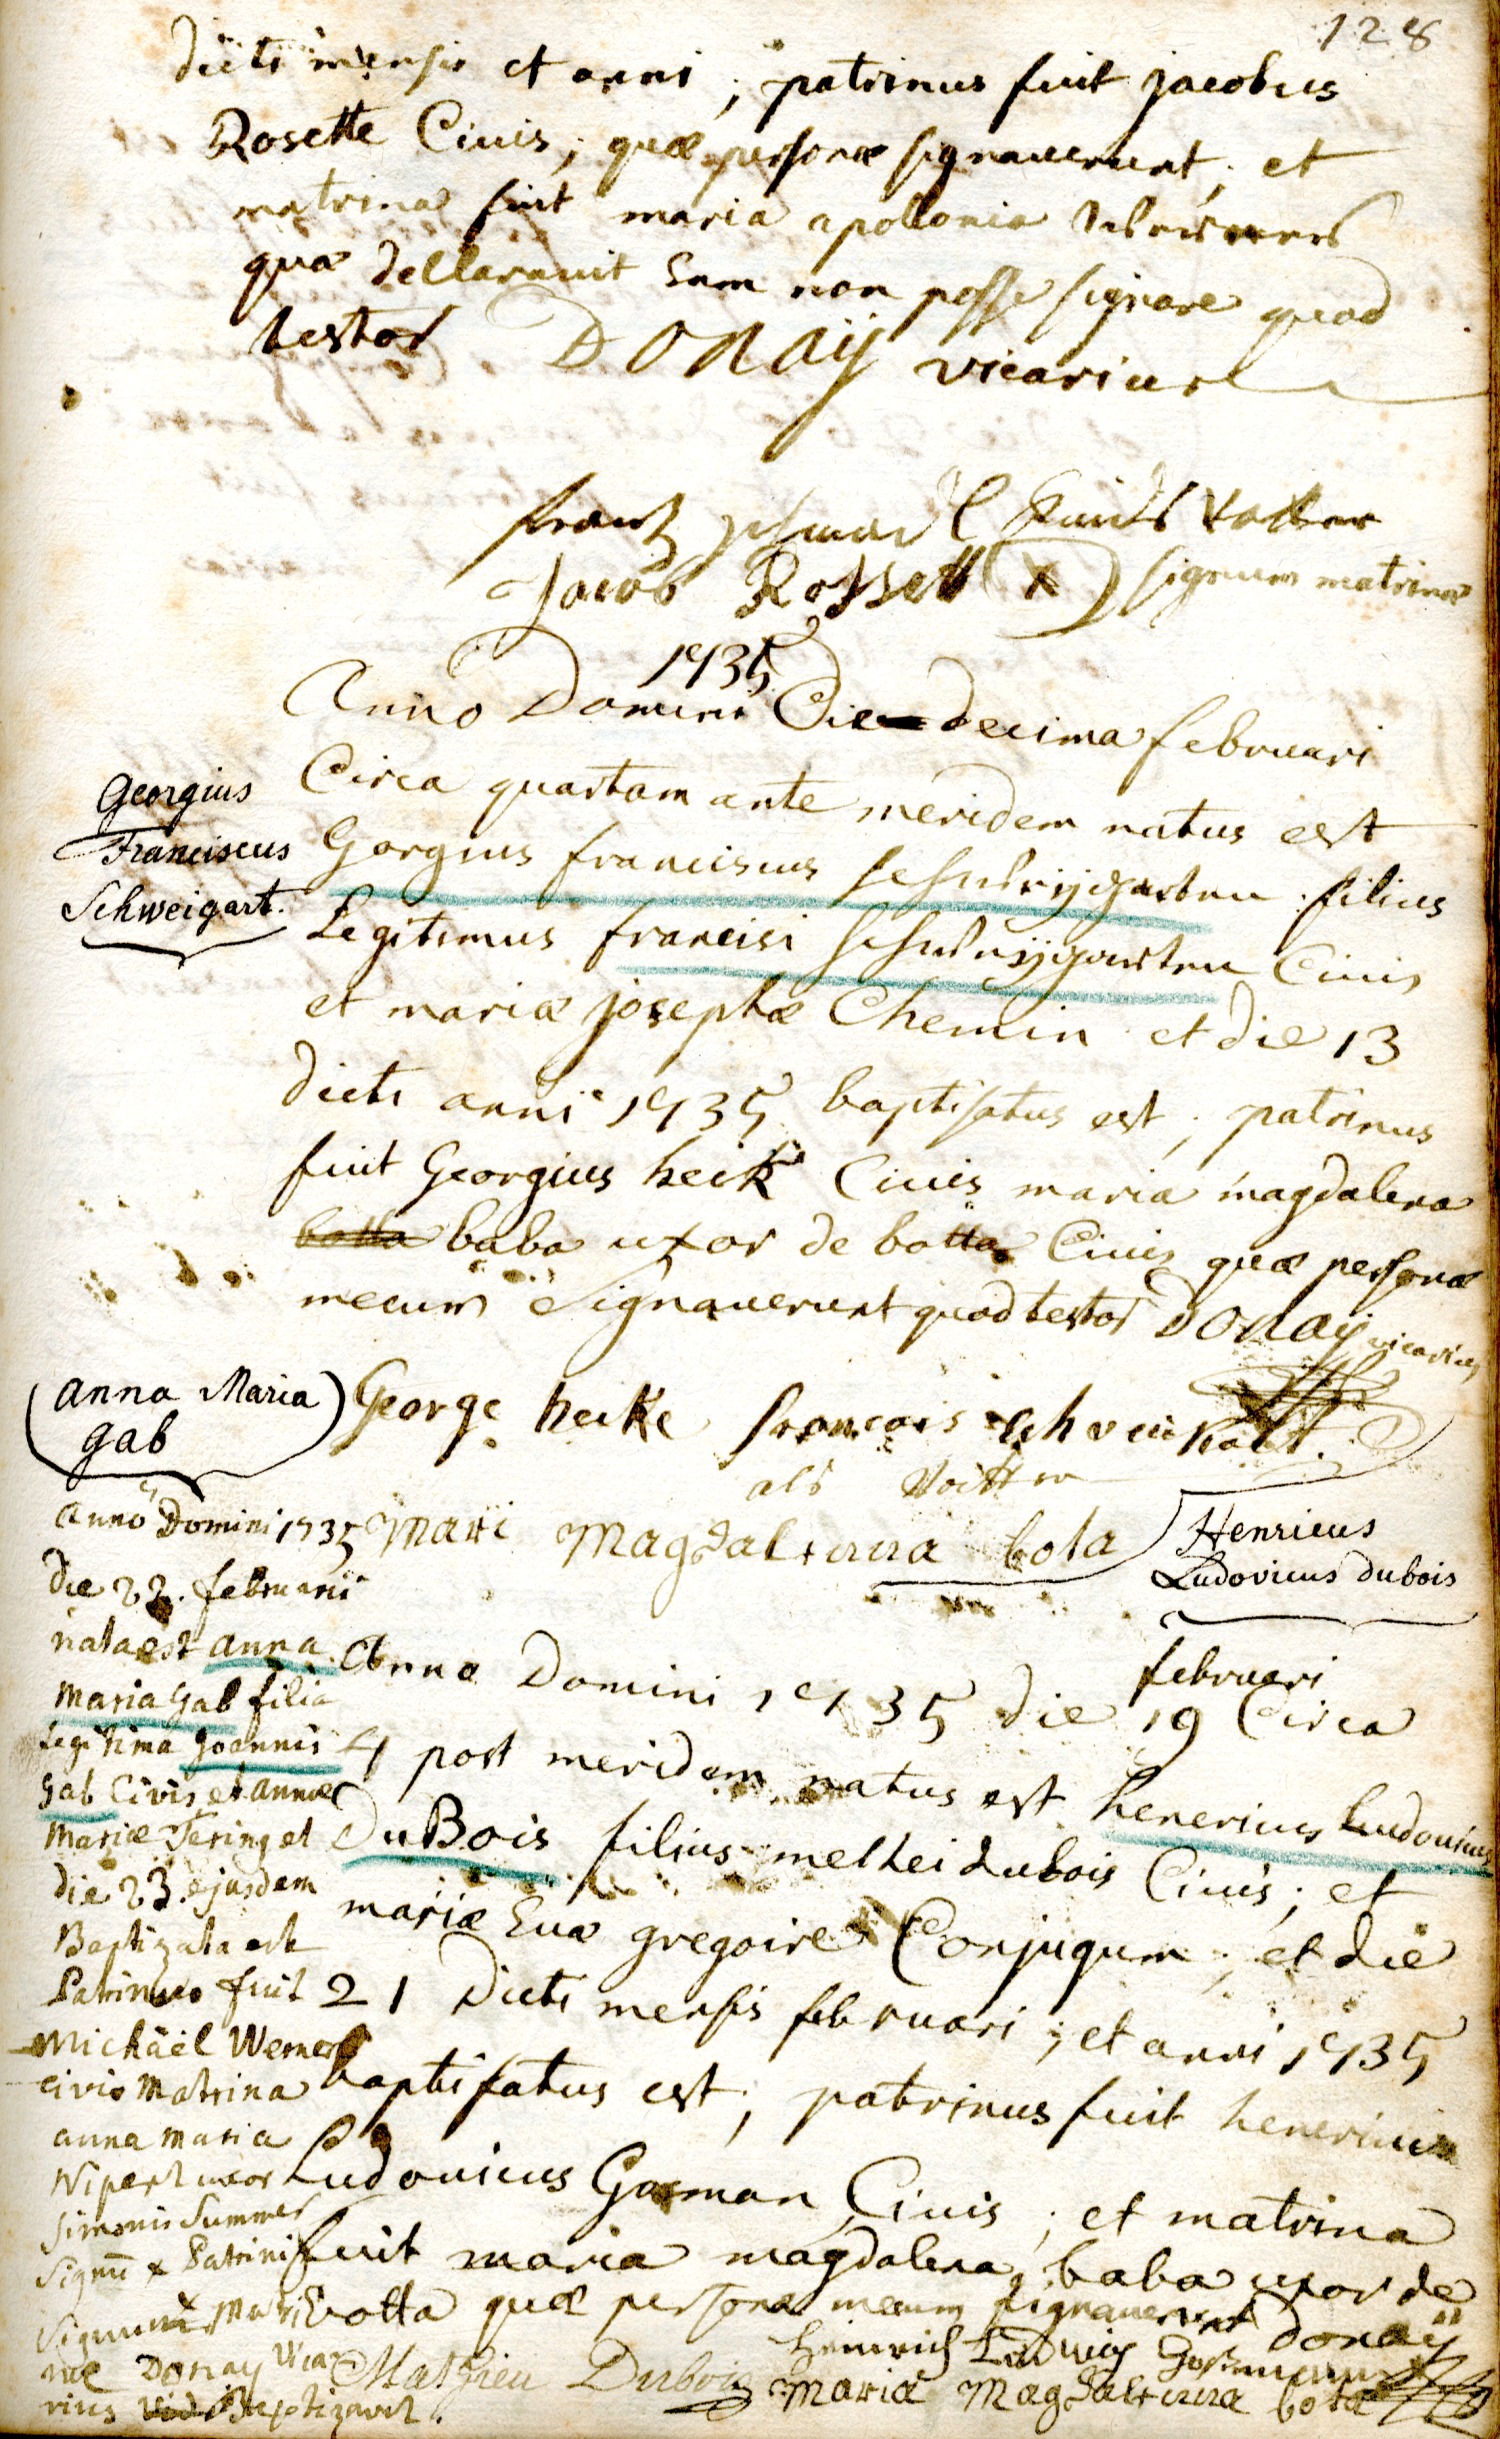 128
dicti mensis et anni ; patrinus fuit jacobus
Rosette Civis ; quæ personæ signaverunt ; et
matrina fuit maria apollonia
quæ declaravit Eam non posse signare quod
testor DONAY vicarius
frantz Kindts Vatter
Jacob Rossett X signum matrinæ
1735
Anno Domini Die decima februari
Circa quartam ante meridem natus est
Gorgius franciscus Schweijgarten filius
Legitimus francisi Schweijgarten Civis
et mariæ josephæ Chemin et die 13
dicti anni 1735 baptisatus est ; patrinus
fuit Georgius heick Civis maria magdalena
botta baba uxor de botta Civis quæ personæ
mecum Signaverunt quod testor DONAY vicarius
Georgius
Franciscus
Schweigart.
George heike francois
als Vatter
Mari Magdalena bota
anna Maria
gab
anno Domini 1735
die 22. februarii
nata est anna
maria gab filia
legitima Joannis
gab Civis et annæ
mariæ Tering et
die 23. ejusdem
Baptizata est
Patrinus fuit
Michäel Werner
civis Matrina
anna maria
Nipert uxor
simonis Summer
Signū x Patrini
Signum x Matri
næ Donay Vica
rius Baptizavit.
Henricus
Ludovicus dubois
februari
Anno Domini 1735 die 19 Circa
4 post meridem natus est henericus Ludovicus
DuBois filius melhei dubois Civis ; et
mariæ Evæ gregoire Conjugum ; et die
21 Dicti mensis februari ; et anni 1735
baptisatus est ; patrinus fuit henericus
Ludovicus Gosman Civis ; et matrina
fuit maria magdalena baba uxor de
botta quæ personæ mecum signaverunt Donaÿ
Heinrich Ludwig Gossmann
Mathieu Dubois Maria Magdalena bota